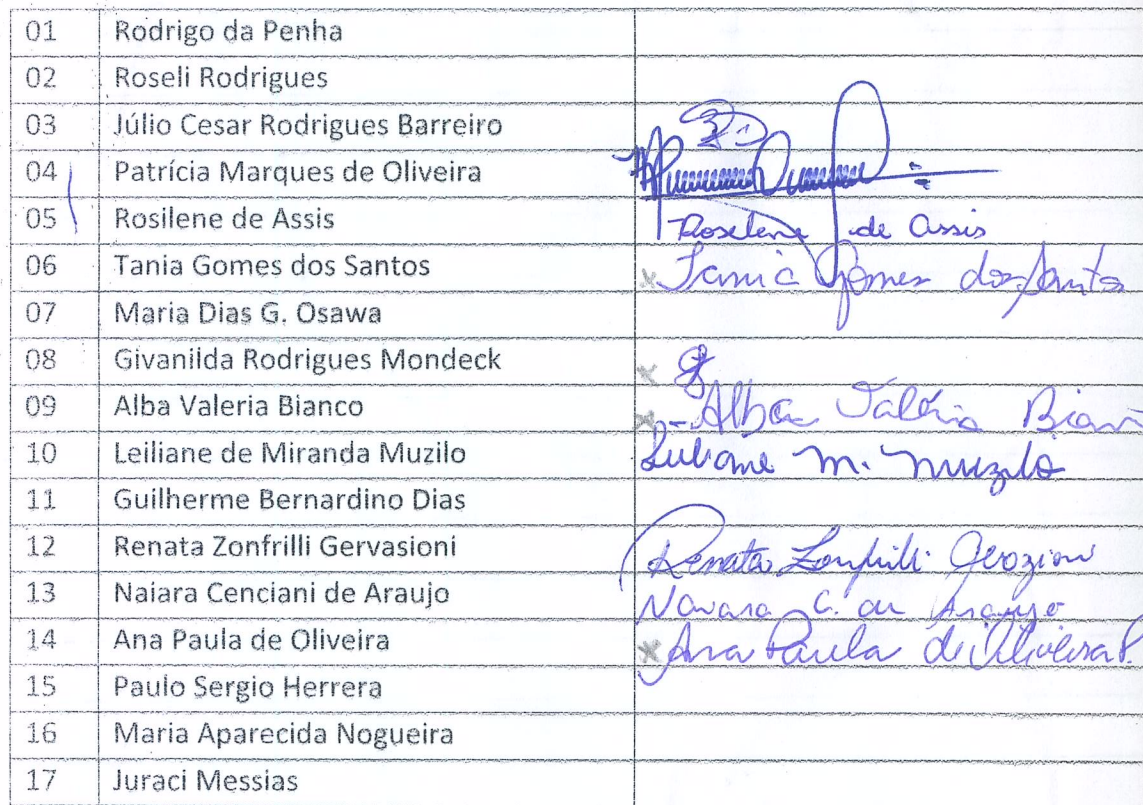 01 Rodrigo da Penha
02 Roseli Rodrigues
03 Júlio Cesar Rodrigues Barreiro
04 Patrícia Marques de Oliveira
05 Rosilene de Assis Roselene de Assis
06 Tania Gomes dos Santos x Tania Gomes dos Santos
07 Maria Dias G. Osawa
08 Givanilda Rodrigues Mondeck x
09 Alba Valeria Bianco x Alba Valéria Bian
10 Leiliane de Miranda Muzilo M. Muzilo
11 Guilherme Bernardino Dias
12 Renata Zonfrilli Gervasioni Renata Zonfrilli
13 Naiara Cenciani de Araujo C. de Araujo
14 Ana Paula de Oliveira x Ana Paula de Oliveira P.
15 Paulo Sergio Herrera
16 Maria Aparecida Nogueira
17 Juraci Messias